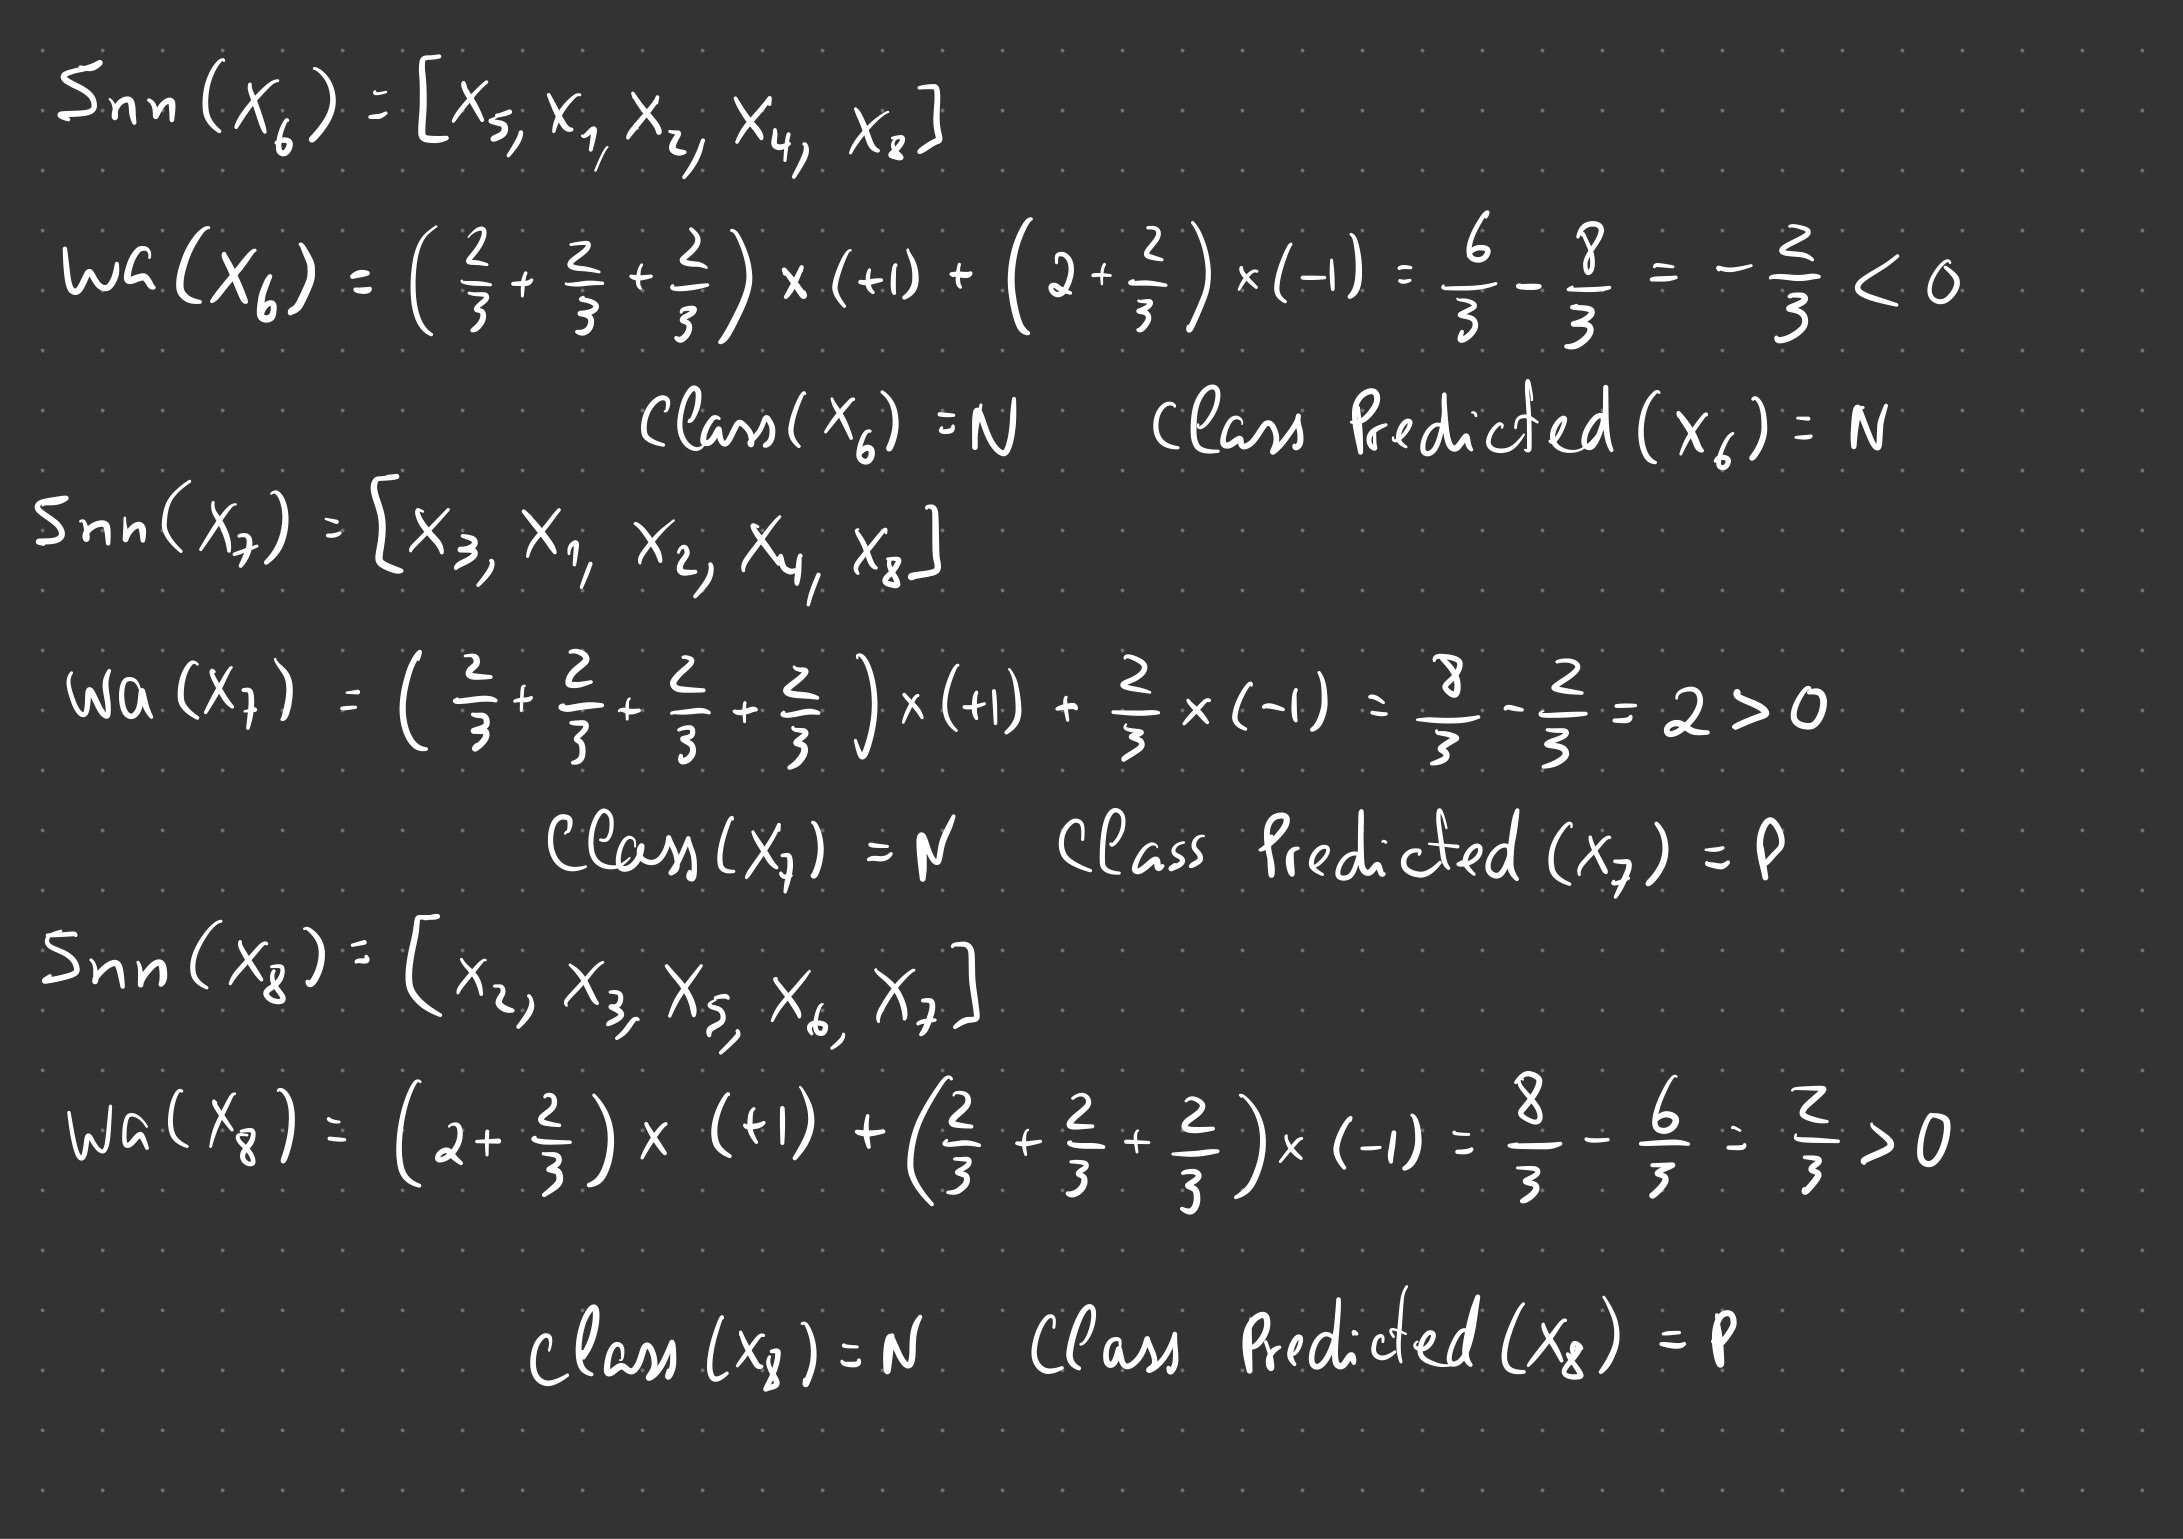 5nn (X₆) = [X₅, X₁, X₂, X₄, X₈]
wa (X₆) = (2/3 + 2/3 + 2/3) × (+1) + (2 + 2/3) × (-1) = 6/3 - 8/3 = - 2/3 < 0
Class (X₆) = N Class Predicted (X₆) = N
5nn (X₇) = [X₃, X₁, X₂, X₄, X₈]
wa (X₇) = (2/3 + 2/3 + 2/3 + 2/3) × (+1) + 2/3 × (-1) = 8/3 - 2/3 = 2 > 0
Class (X₇) = N Class Predicted (X₇) = P
5nn (X₈) = [X₂, X₃, X₅, X₆, X₇]
wa (X₈) = (2 + 2/3) × (+1) + (2/3 + 2/3 + 2/3) × (-1) = 8/3 - 6/3 = 2/3 > 0
Class (X₈) = N Class Predicted (X₈) = P